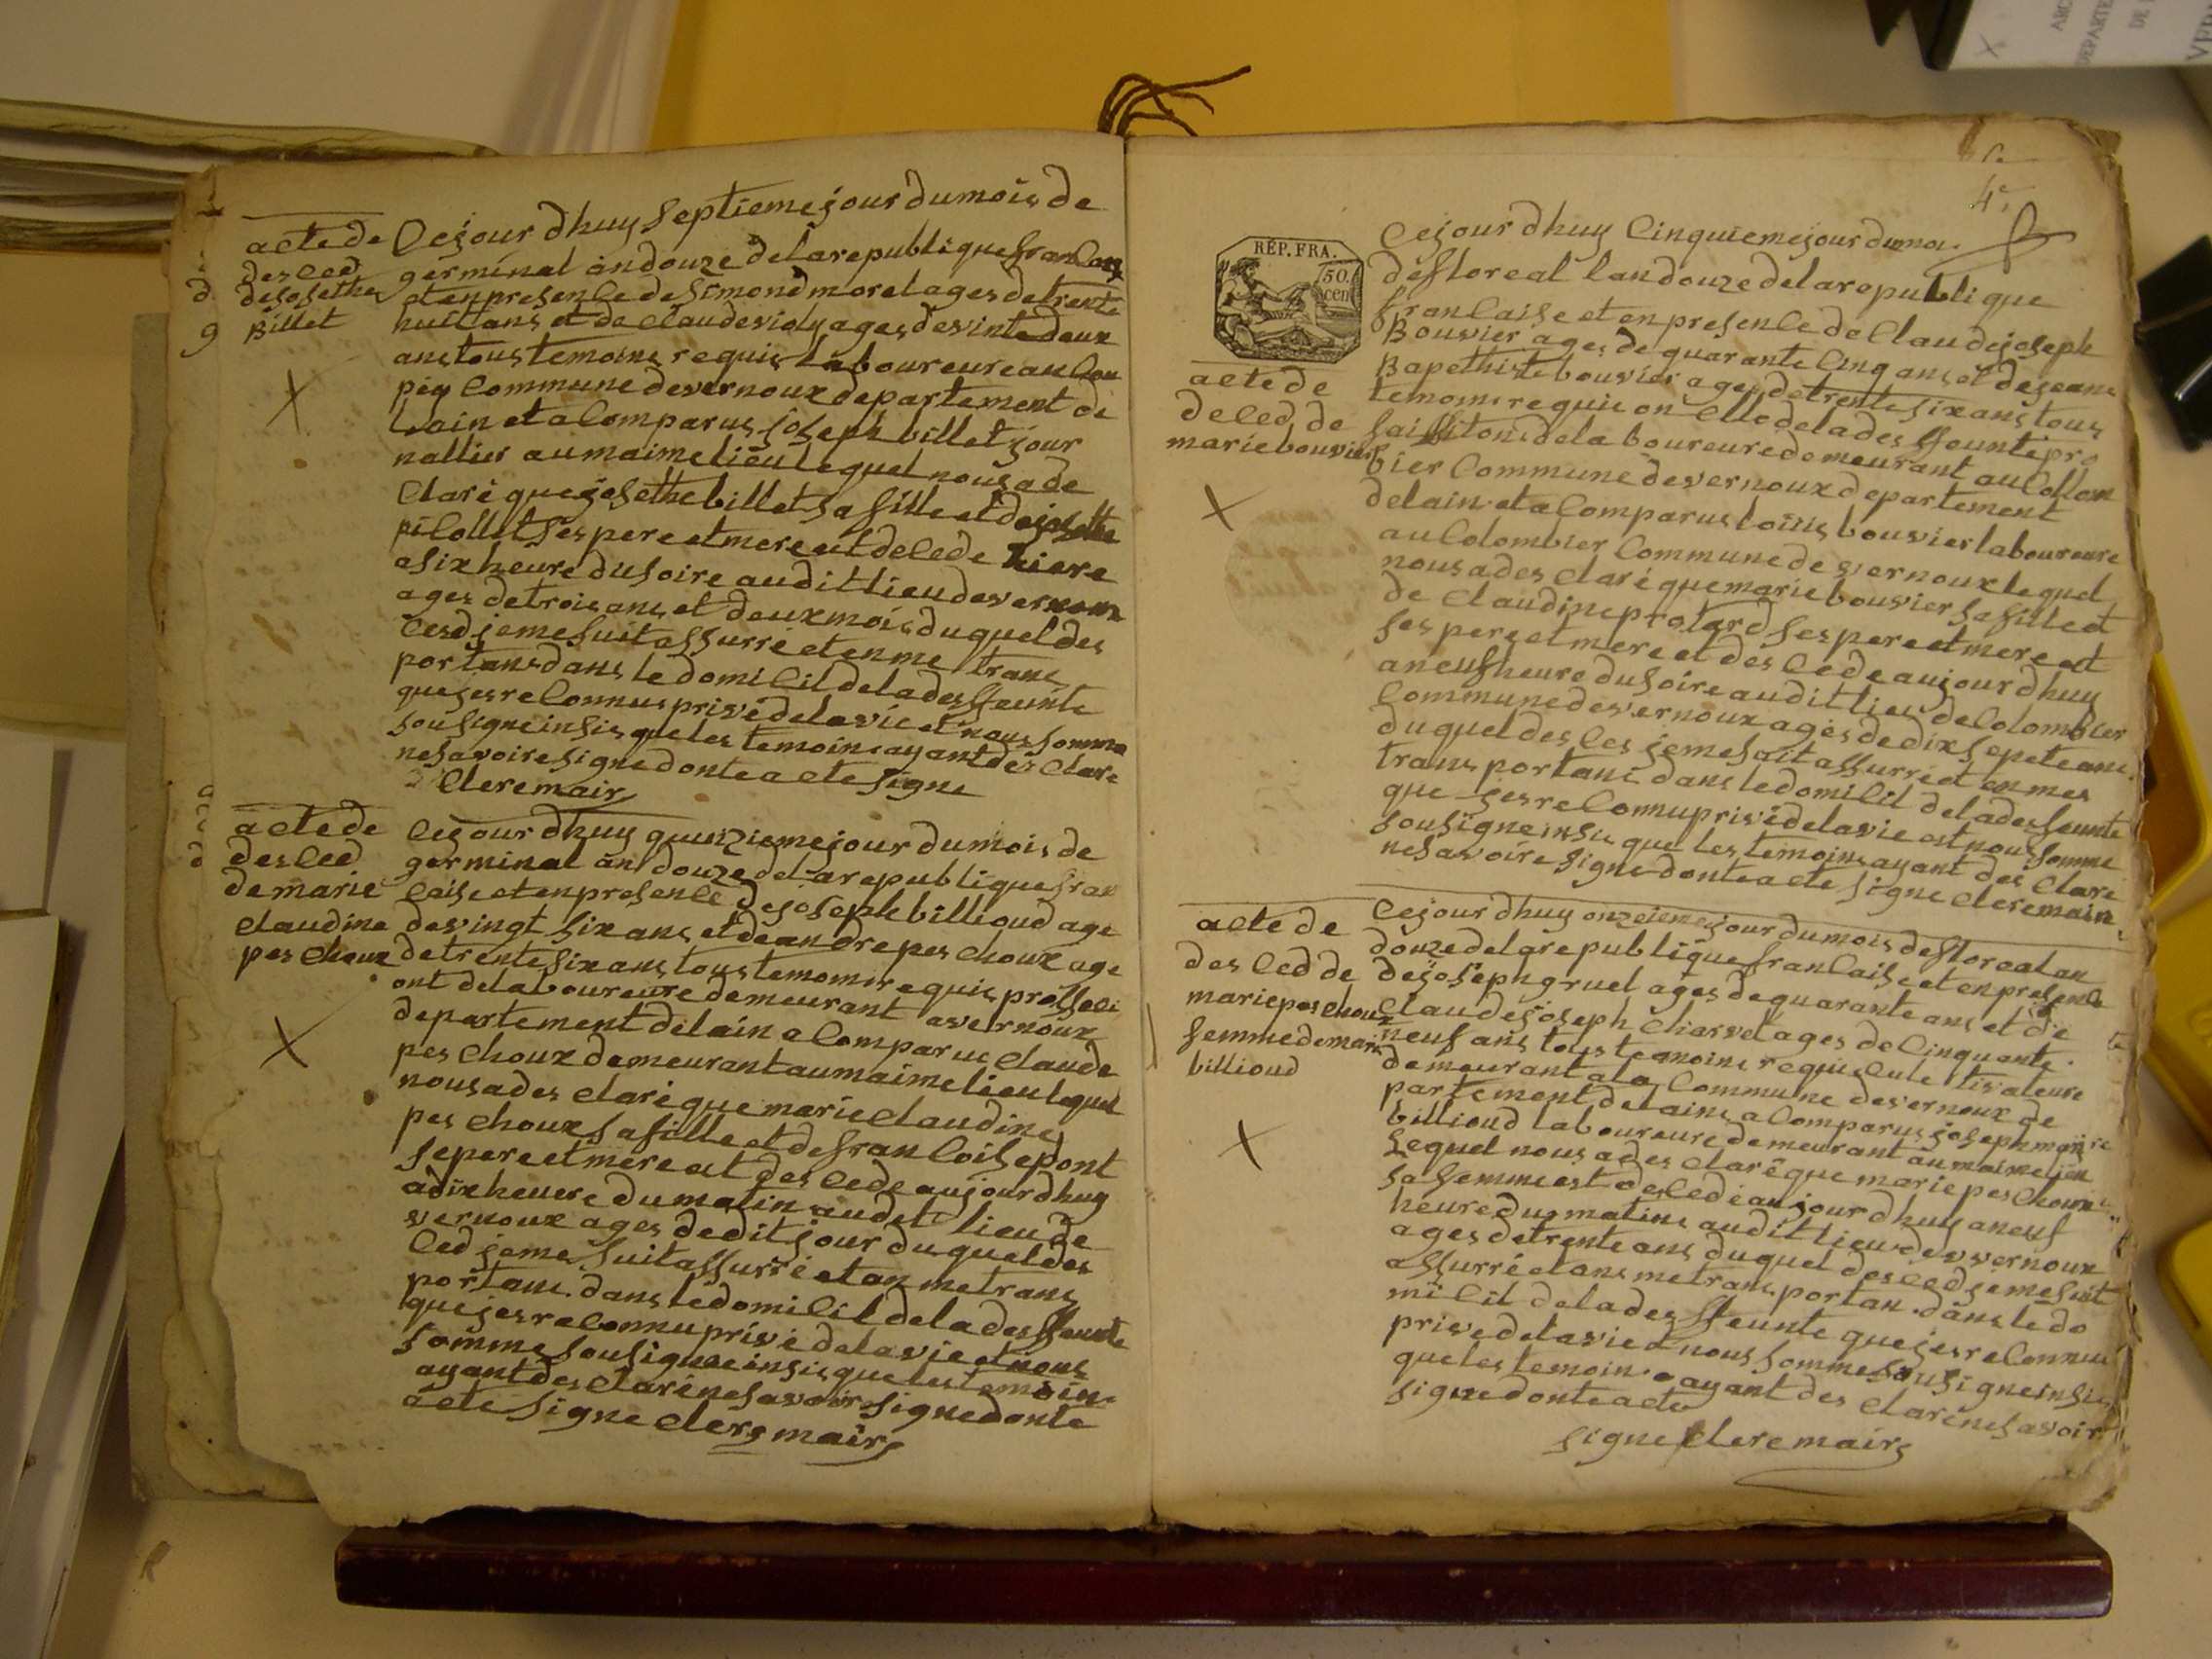 acte de
desced
de josethe
Billet
Cejour dhuy septieme jour du mois de
germinal an douze de la republique francay
et en presence de simond morel ages de trente
huit ans et de claude violy ages de vinte deux
ans tous temoins requis laboureure au Cou
pey Commune de vernoux departement de
lain et a Comparus joseph billet jour
nallier au maime lieu lequel nous a de
Claré que josethe billet sa fille et de josethe
picollet ses pere et mere et decede hiere
a six heure du soire au dit lieu de vernoux
ages de trois ans et deux mois duquel des
cesd je me suit assurré et en me trans
portans dans le domicil de la deffeunte
que jes reconnus privé de la vie et nous somme
sousigne insis que les temoins ayant des clare
ne savoire signe donte acte signe
Clere mair
acte de
desced
de marie
claudine
pes choux
Cejour dhuy quinzieme jour du mois de
germinal an douze de la republique fran
caise et en presence de joseph billioud age
de vingt six ans et de andre pes choux age
de trente six ans tous temoins requis proffeci
ont de laboureure demeurant a vernoux
departement de lain a Comparus claude
pes choux demeurant au maime lieu lequel
nous a des claré que marie claudine
pes choux sa fille et de francoise pont
se pere et mere et des cede aujourdhuy
a dix heuere du matin au dit lieu de
vernoux ages de dit jour duquel des
ced je me suit assurré et an me trans
portans dans le domicil de la deffeunte
que jes reconnu privé de la vie et nous
somme sousigne insis que les temoin
ayant des claré ne savoir signe donte
acte signe clere maire
4e
RÉP. FRA.
50.
cen
acte de
deced de
marie bouvier
Cejour dhuy Cinquieme jour du moi
de floreal lan douze de la republique
francaise et en presence de Claude joseph
Bouvier ages de quarante Cinq ans et de jeans
Bapethiste bouvier ages de trente six ans tous
temoins requis on elle de la deffeunte pro
faissitons de laboureure demeurant au Collon
bier Commune de vernoux departement
de lain et a Comparus loüis bouvier laboureure
au Colombier Commune de vernoux lequel
nous a des claré que marie bouvier sa fille et
de claudine protard ses pere et mere et
ses pere et mere et des cede aujour dhuy
a neuf heure du soire au dit lieu de Colombier
Commune de vernoux ages de dix sepete ans
duquel des ces je me sait assurré et en mes
trans portant dans le domicil de la deffeunte
que jes reconnu privé de la vie et nous somme
sousigne insis que les temoins ayant des clare
ne savoire signe donte acte signe clere maire
acte de
des ced de
marie pes choux
femme de marie
billioud
Cejour dhuy onzeieme jour du mois de floreal an
douze de la republique francaise et en presence
de joseph gruel ages de quarante ans et de
claude joseph charvet ages de Cinquante
neuf ans tous temoins requis cule tivateure
demeurant a la Commune de vernoux de
partement de lains a Comparus joseph marie
billioud laboureure demeurant au maime lieu
Lequel nous a des claré que marie pes choux
sa femme est des cedé aujour dhuy a neuf
heure du matins au dit lieu de vernoux
ages de trente ans duquel des ced je me suit
assurré et ans me trans portan dans le do
micil de la deffeunte que jes reconnus
prive de la vie et nous somme sousigne insis
que les temoin ayant des claré ne savoir
signe donte acte
signe clere maire